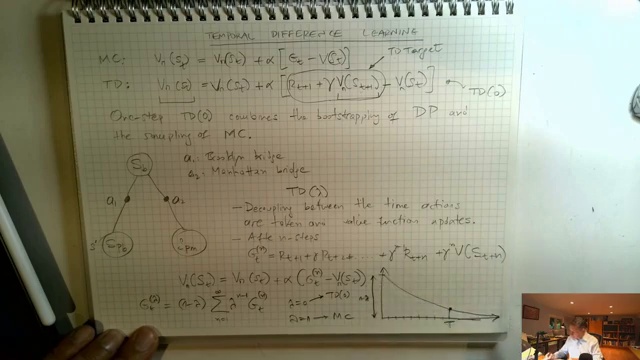 TEMPORAL DIFFERENCE LEARNING
MC: Vπ(St) = Vπ(St) + α [Gt - V(St)]
TD Target
TD: Vπ(St) = Vπ(St) + α [Rt+1 + γ Vπ(St+1) - Vπ(St)]
TD(0)
One-step TD(0) combines the bootstrapping of DP and
the sampling of MC.
a1: Brooklyn bridge
a2: Manhattan bridge
S6
a1
a2
s'
TD(λ)
- Decoupling between the time actions
are taken and value function updates.
- After n-steps
Gt(n) = Rt+1 + γ Rt+2 + γ Rt+n + γn V(St+n)
Vπ(St) = Vπ(St) + α (Gt(n) - Vπ(St))
Gt(λ) = (1-λ) ∑ n=1 ∞ λn-1 Gt(n)
λ=0 → TD(0)
λ=1 → MC
T